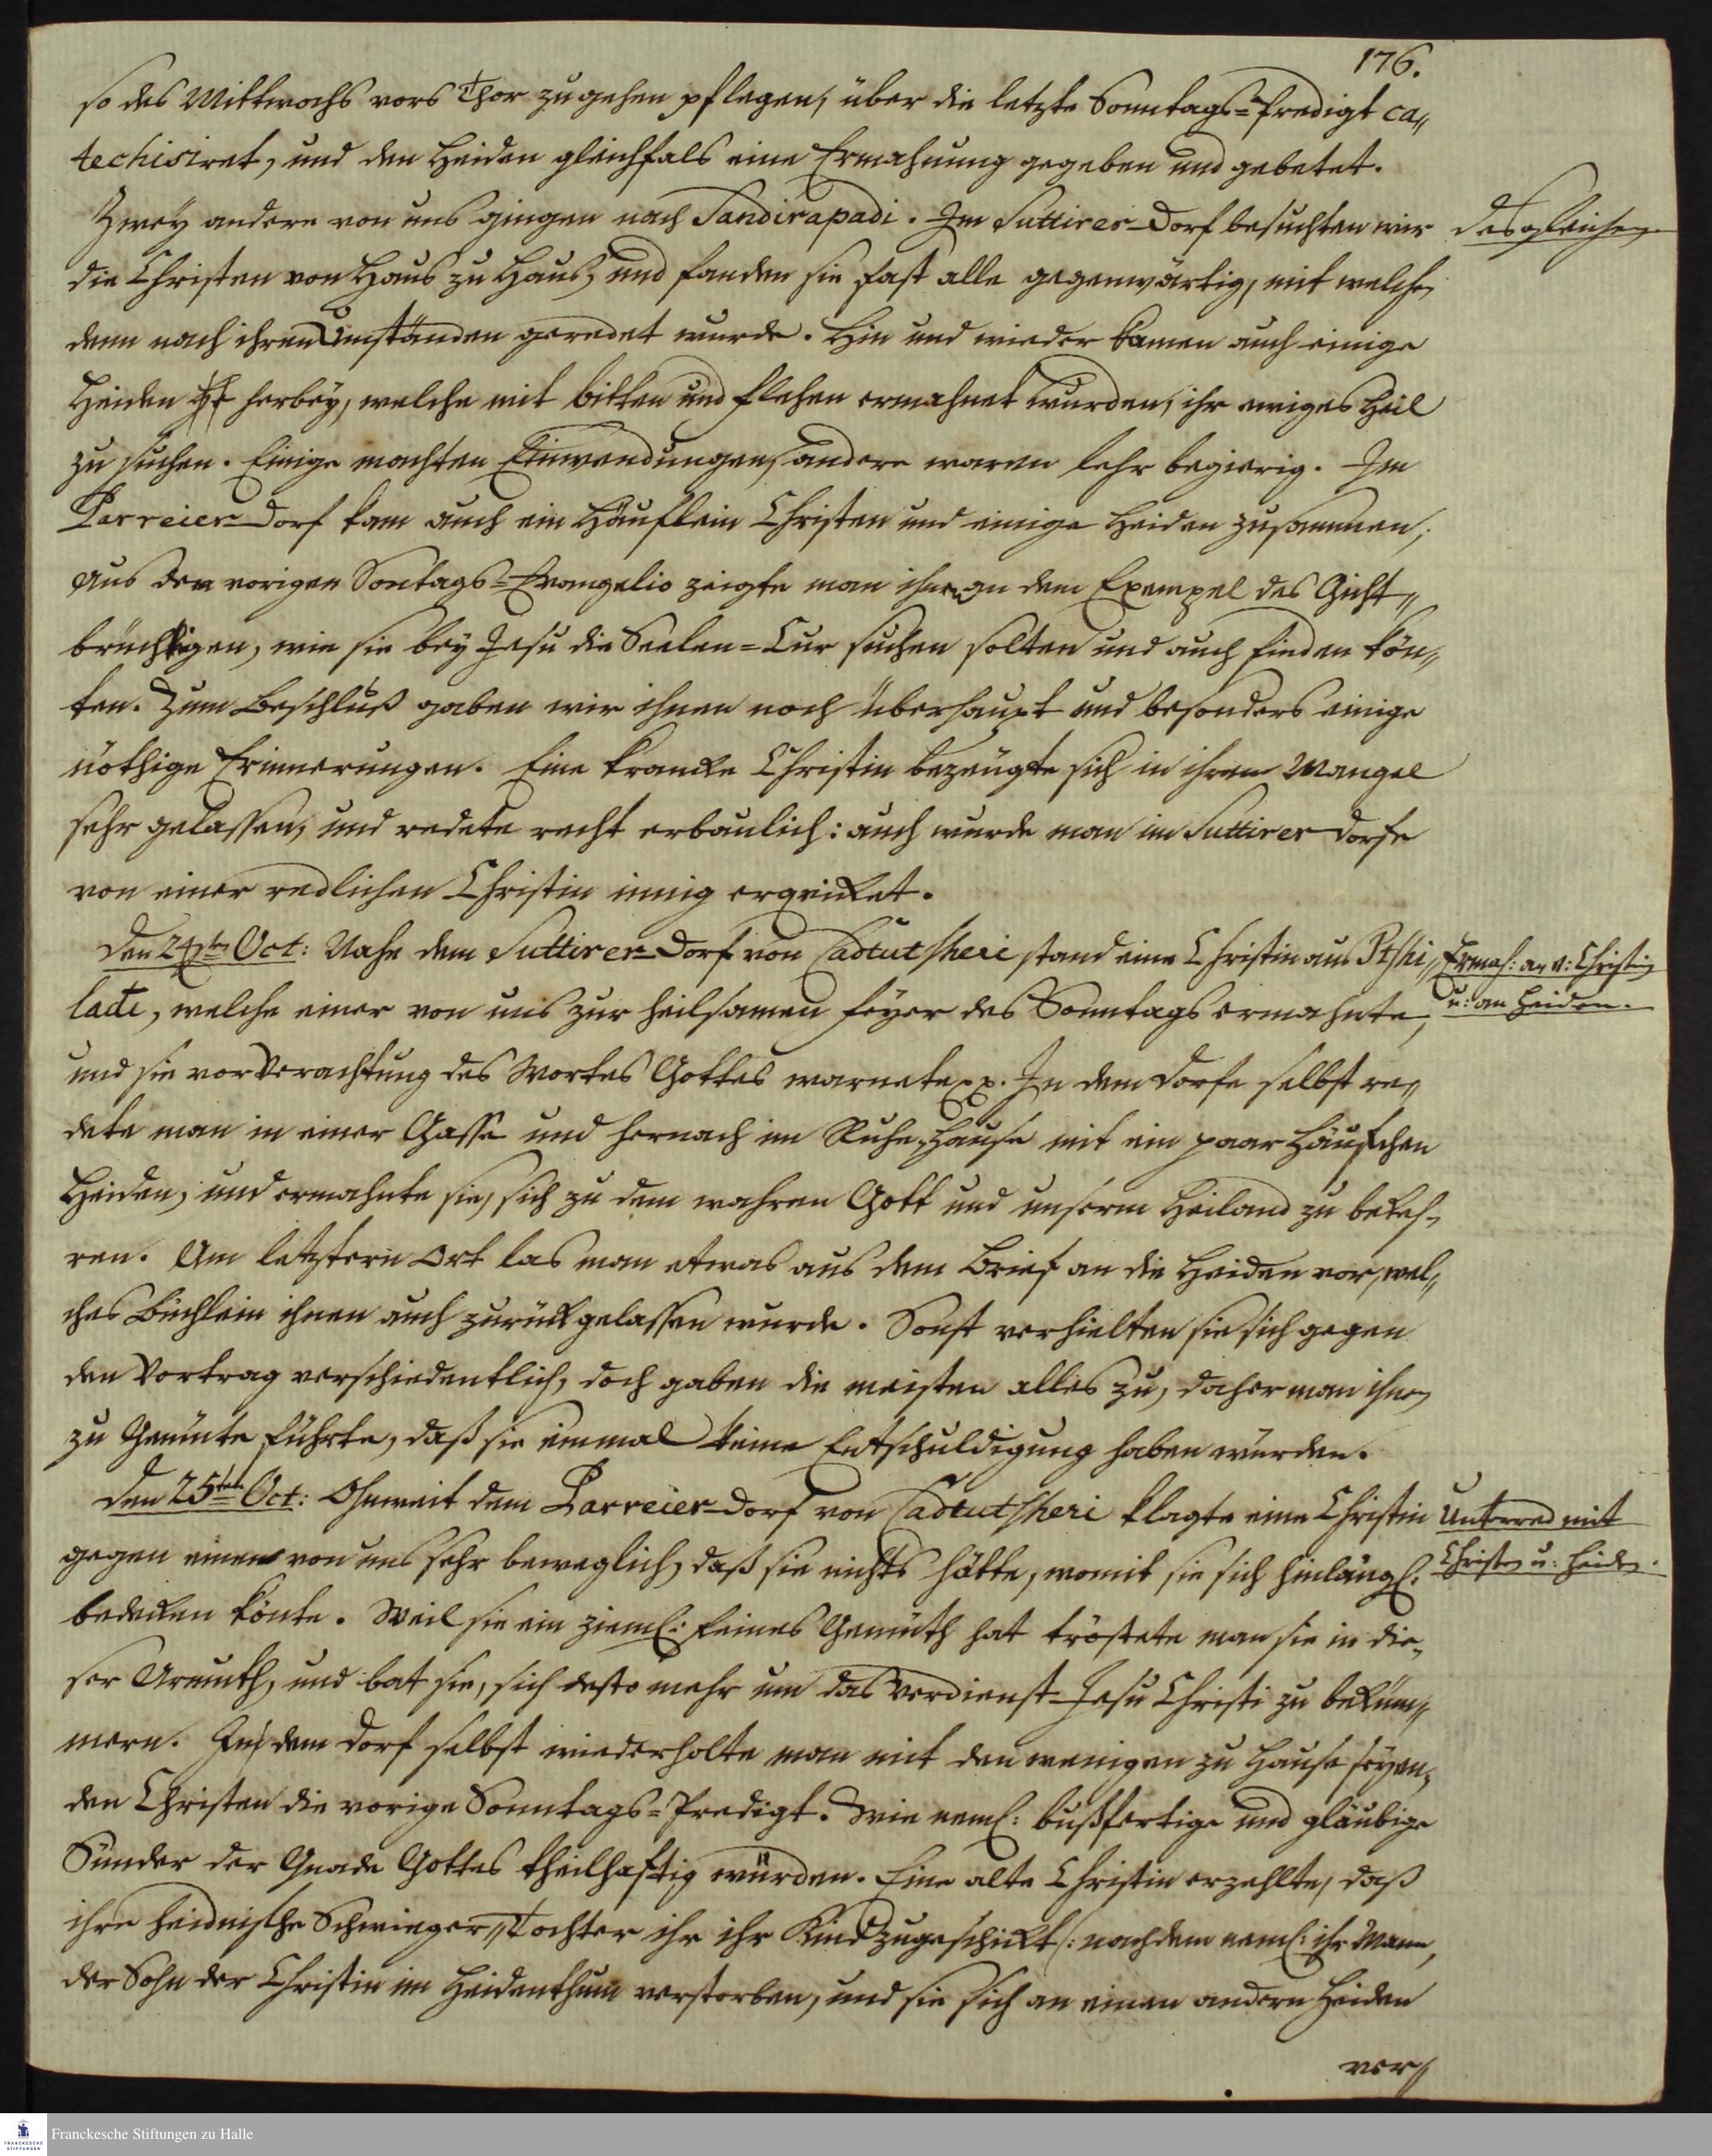 176.
so des Mittwochs vors Thor zugehen pflegen, über die letzte Sonntags=Predigt ca„
techisiret, und den Heiden gleichfals eine Ermahnung gegeben und gebetet.
Zwey andere von uns gingen nach Sandirapadi. Im Suttirer=Dorf besuchten wir
desgleichen
die Christen von Haus zu Haus, und fanden sie fast alle gegenwärtig, mit welchen
denn nach ihren Umständen geredet wurde. Hin und wieder kamen auch einige
Heiden herbey, welche mit bitten und flehen ermahnet wurden, ihr ewiges Heil
zu suchen. Einige machten Einwendungen, andere waren lehr begierig. Im
Parreier=Dorf kam auch ein Häuflein Christen und einige Heiden zusammen,
Aus dem vorigen Sontags=Evangelio zeigte man ihnen an dem Exempel des Gicht„
brüchtigen, wie sie bey Jesu die Seelen=Cur suchen solten und auch finden kön„
ten. Zum Beschluß gaben wir ihnen noch überhaupt und besonders einige
nöthige Erinnerungen. Eine krancke Christin bezeugte sich in ihrem Mangel
sehr gelassen, und redete recht erbaulich: auch wurde man im Suttirer Dorfe
von einer redlichen Christin innig erqvicket.
Den 24sten Oct: Nahe dem Suttirer=Dorf von Cadtutsheri stand eine Christin aus Ptshi„
Ermah: an e: Christin
u: an Heiden.
ladi, welche einer von uns zur heilsamen feyer des Sonntags ermahnte,
und sie vor Verachtung des Wortes Gottes warnete pp. In dem Dorfe selbst re„
dete man in einer Gasse und hernach im Ruhe=Hause mit ein paar Häufchen
Heiden, und ermahnte sie, sich zu dem wahren Gott und unserm Heiland zu bekeh„
ren. Am letztern Ort las man etwas aus dem Brief an die Heiden vor, wel„
ches Büchlein ihnen auch zurückgelassen wurde. Sonst verhielten sie sich gegen
den Vortrag verschiedentlich, doch gaben die meisten alles zu, daher man ihnen
zu Gemüte führte, daß sie einmal keine Entschuldigung haben würden.
Den 25ten Oct: Ohnweit dem Parreier=Dorf von Cadtutsheri klagte eine Christin
Unterred mit
Christen u: Heiden.
gegen einen von uns sehr beweglich, daß sie nichts hätte, womit sie sich hinlängl:
bedecken könte. Weil sie ein zieml: feines Gemüth hat tröstete man sie in die„
ser Armuth, und bat sie, sich desto mehr um das Verdienst Jesu Christi zu beküm„
mern. In dem Dorf selbst wiederholte man mit den wenigen zu Hause seyen„
den Christen die vorige Sonntags=Predigt. Wie neml: bußfertige und gläubige
Sünder der Gnade Gottes theilhaftig würden. Eine alte Christin erzehlte, daß
ihre heidnische Schwieger„Tochter ihr ihr Kind zugeschickt /: nachdem neml: ihr Mann,
der Sohn der Christin im Heidenthum verstorben, und sie sich an einen andern Heiden
ver„
Franckesche Stiftungen zu Halle
FRANCKESCHE
STIFTUNGEN